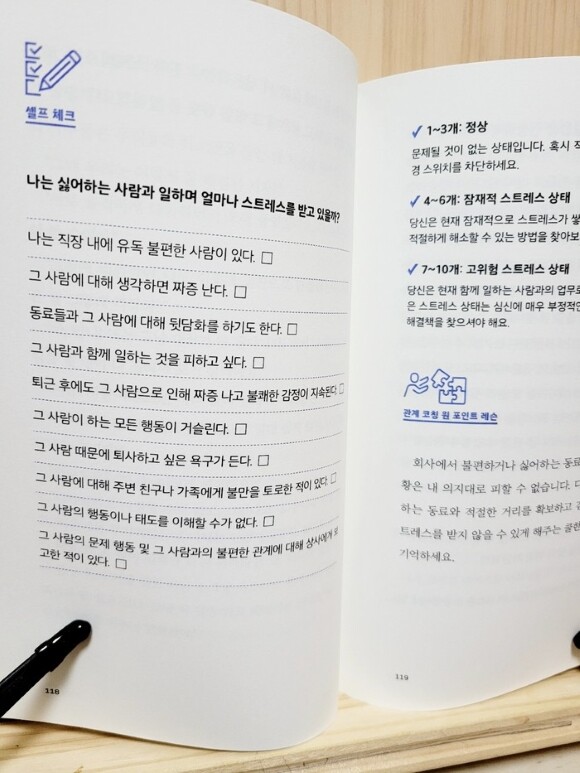 셀프 체크
나는 싫어하는 사람과 일하며 얼마나 스트레스를 받고 있을까?
나는 직장 내에 유독 불편한 사람이 있다. □
그 사람에 대해 생각하면 짜증 난다. □
동료들과 그 사람에 대해 뒷담화를 하기도 한다. □
그 사람과 함께 일하는 것을 피하고 싶다. □
퇴근 후에도 그 사람으로 인해 짜증 나고 불쾌한 감정이 지속된다. □
그 사람이 하는 모든 행동이 거슬린다. □
그 사람 때문에 퇴사하고 싶은 욕구가 든다. □
그 사람에 대해 주변 친구나 가족에게 불만을 토로한 적이 있다. □
그 사람의 행동이나 태도를 이해할 수가 없다. □
그 사람의 문제 행동 및 그 사람과의 불편한 관계에 대해 상사에게
고한 적이 있다. □
118
✓ 1~3개: 정상
문제될 것이 없는 상태입니다. 혹시
경 스위치를 차단하세요.
✓ 4~6개: 잠재적 스트레스 상태
당신은 현재 잠재적으로 스트레스가
적절하게 해소할 수 있는 방법을 찾아보
✓ 7~10개: 고위험 스트레스 상태
당신은 현재 함께 일하는 사람과의 업무로
은 스트레스 상태는 심신에 매우 부정적인
해결책을 찾으셔야 해요.
관계 코칭 원 포인트 레슨
회사에서 불편하거나 싫어하는 동료
황은 내 의지대로 피할 수 없습니다.
하는 동료와 적절한 거리를 확보하고
트레스를 받지 않을 수 있게 해주는 쿨한
기억하세요.
119